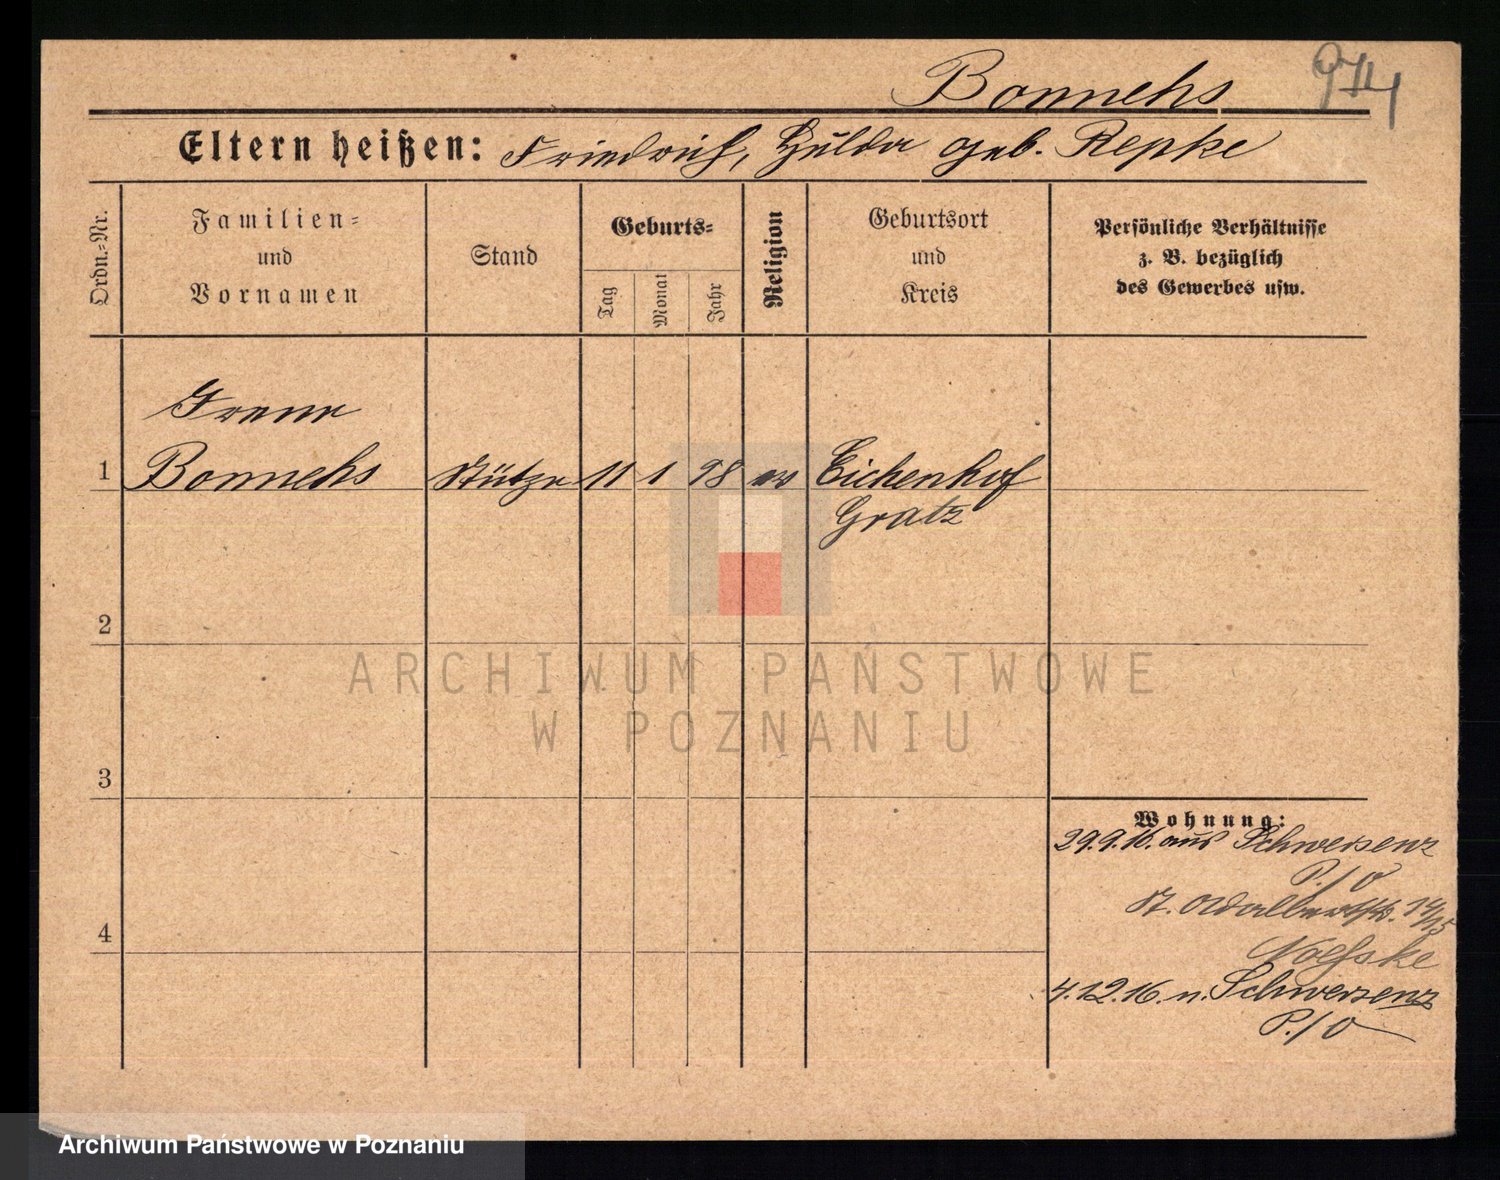 Bonnehs
974
Eltern heißen: Friedrich, Hulda geb. Repke
Ordn.=Nr.
Familien=
und
Vornamen
Stand
Geburts=
Tag
Monat
Jahr
Religion
Geburtsort
und
Kreis
Persönliche Verhältnisse
z. B. bezüglich
des Gewerbes usw.
Irene
1 Bonnehs Stütze 11 1 98 ev Eichenhof
Gratz
2
ARCHIWUM PAŃSTWOWE
W POZNANIU
3
Wohnung:
29.9.16. aus Schwersenz
P./O
St. Adalbertstr. 14/15
4
4.12.16. n. Schwersenz
P./O
Archiwum Państwowe w Poznaniu